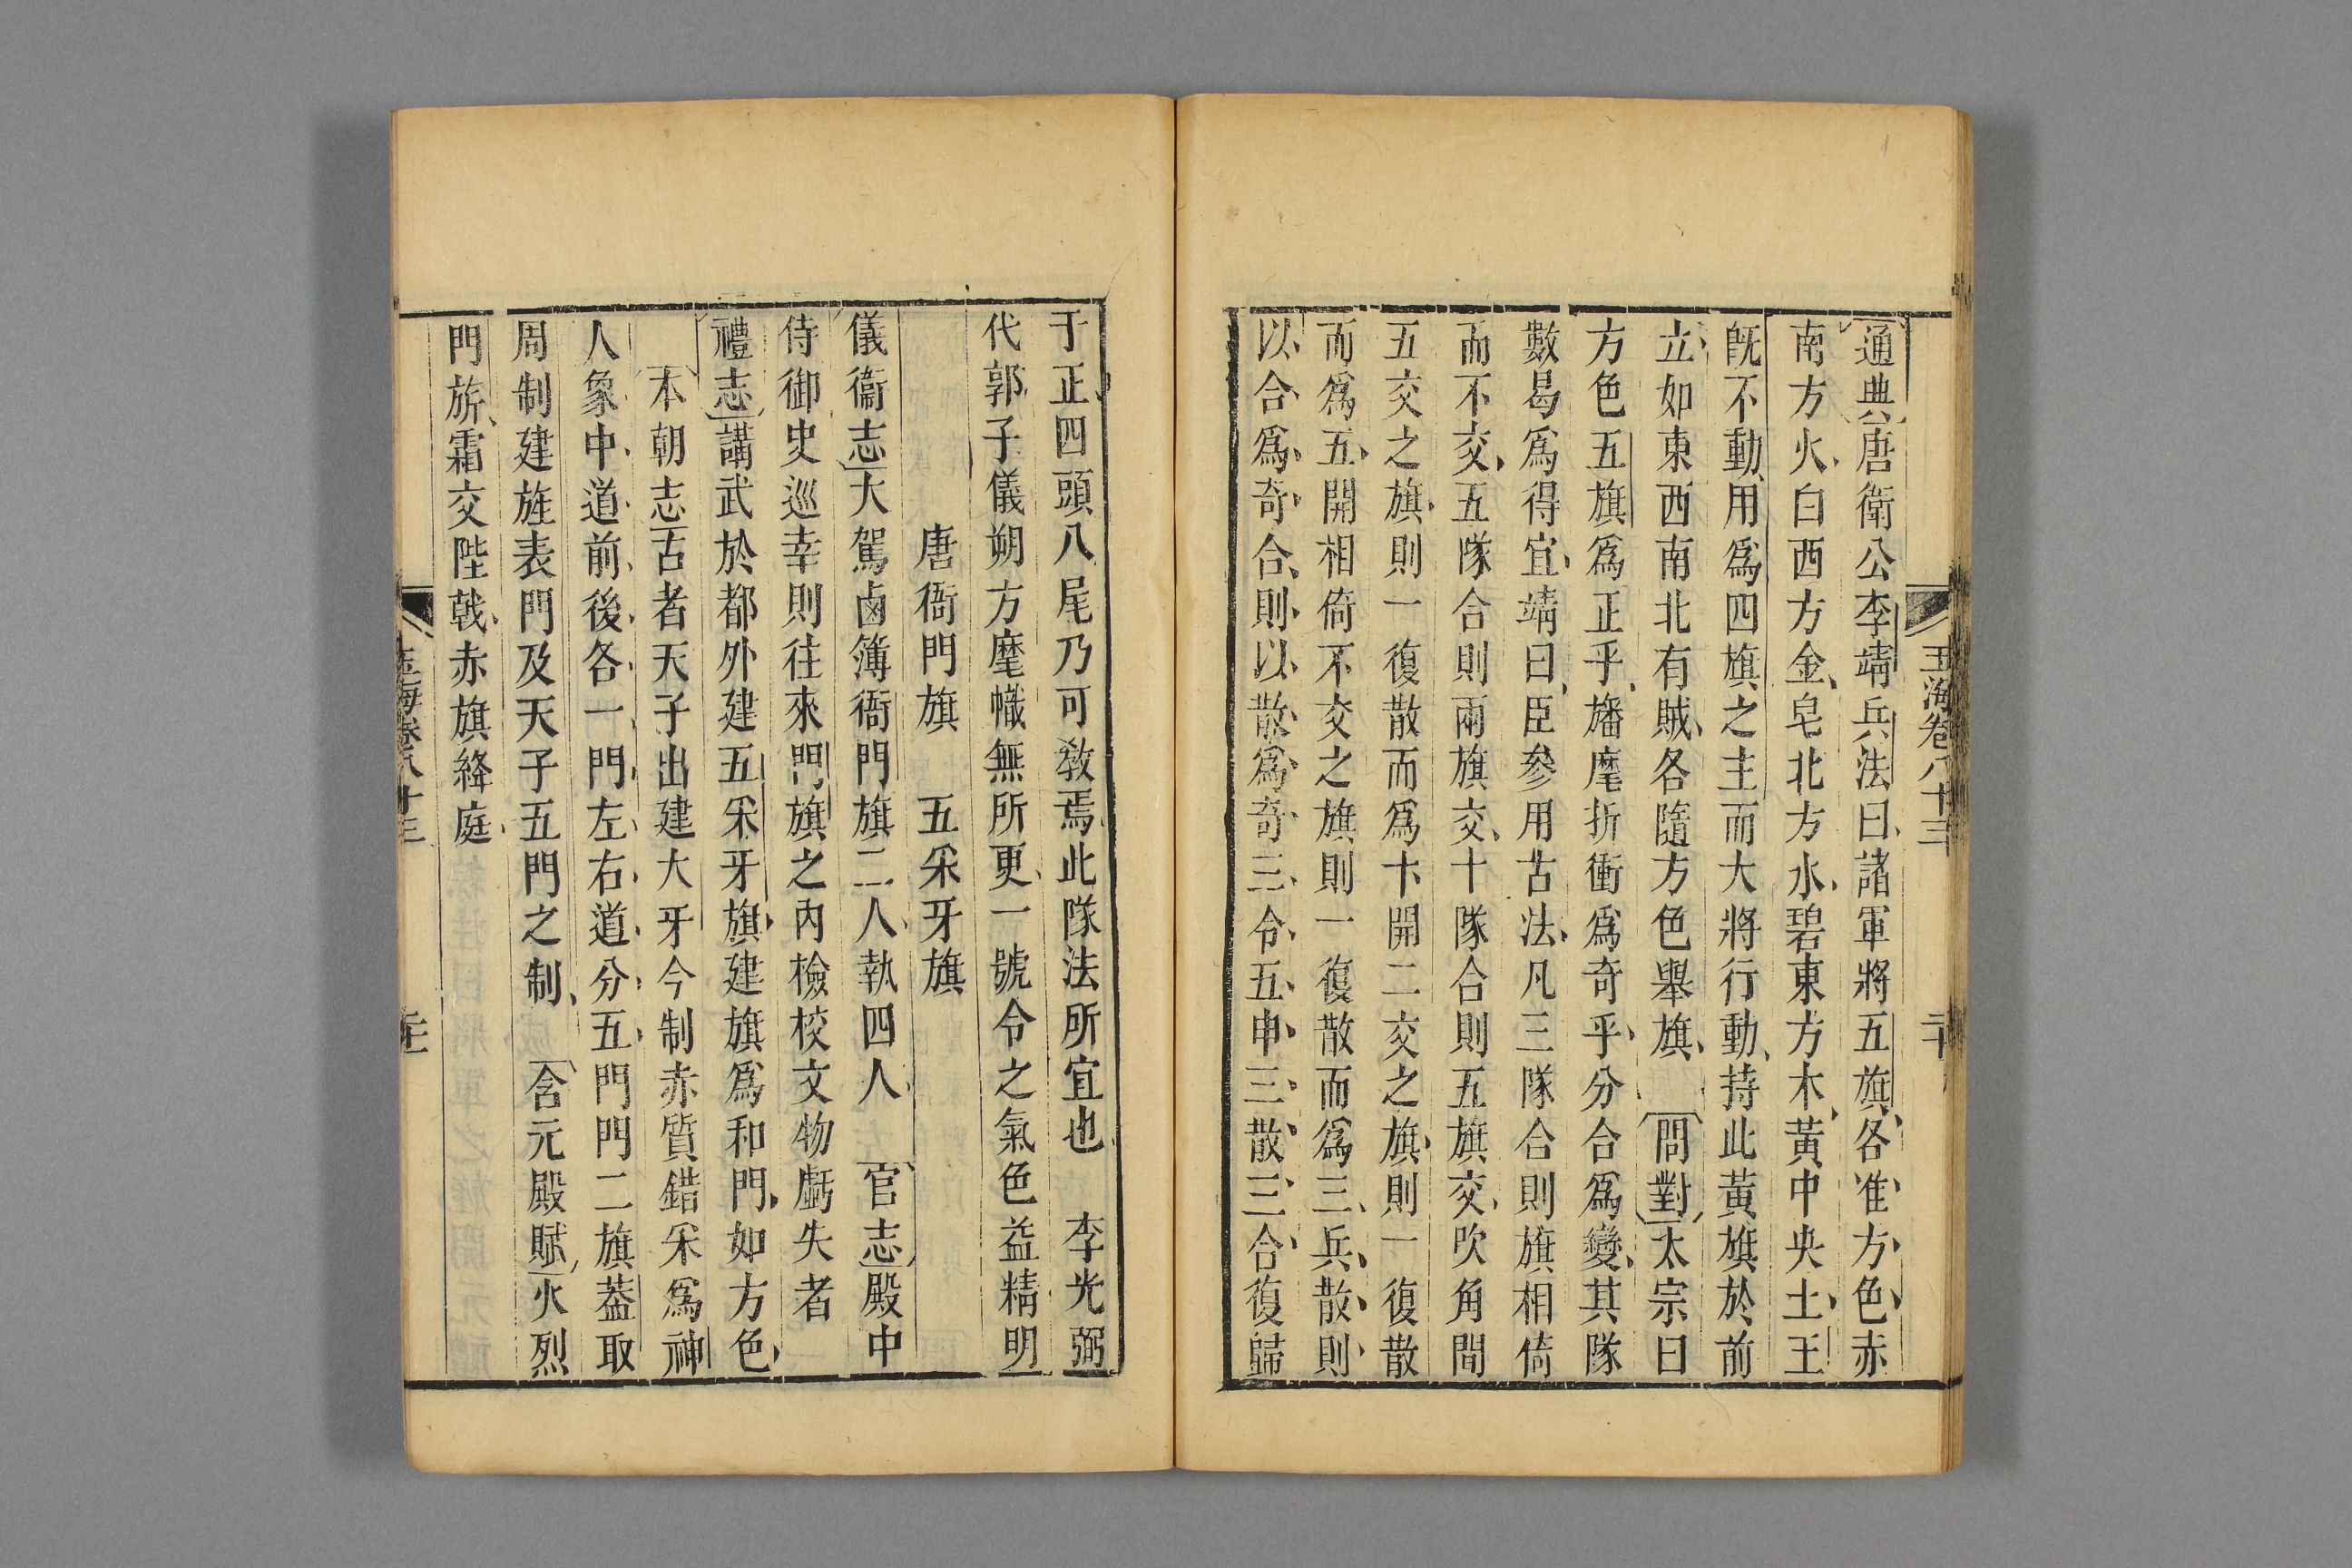 玉海卷八十三
二十
通典唐衛公李靖兵法曰諸軍將五旗各准方色赤
南方火白西方金皂北方水碧東方木黃中央土王
旣不動用爲四旗之主而大將行動持此黃旗於前
立如東西南北有賊各隨方色舉旗　問對太宗曰
方色五旗爲正乎旛麾折衝爲奇乎分合爲變其隊
數曷爲得宜靖曰臣參用古法凡三隊合則旗相倚
而不交五隊合則兩旗交十隊合則五旗交吹角開
五交之旗則一復散而爲十開二交之旗則一復散
而爲五開相倚不交之旗則一復散而爲三兵散則
以合爲奇合則以散爲奇三令五申三散三合復歸
于正四頭八尾乃可敎焉此隊法所宜也　李光弼
代郭子儀朔方麾幟無所更一號令之氣色益精明
唐衙門旗　五采牙旗
儀衞志大駕鹵簿衙門旗二人執四人　官志殿中
侍御史巡幸則往來門旗之內檢校文物虧失者
禮志講武於都外建五采牙旗建旗爲和門如方色
本朝志古者天子出建大牙今制赤質錯采爲神
人象中道前後各一門左右道分五門門二旗葢取
周制建旌表門及天子五門之制　含元殿賦火烈
門旂霜交陛戟赤旗絳庭
玉海卷八十三